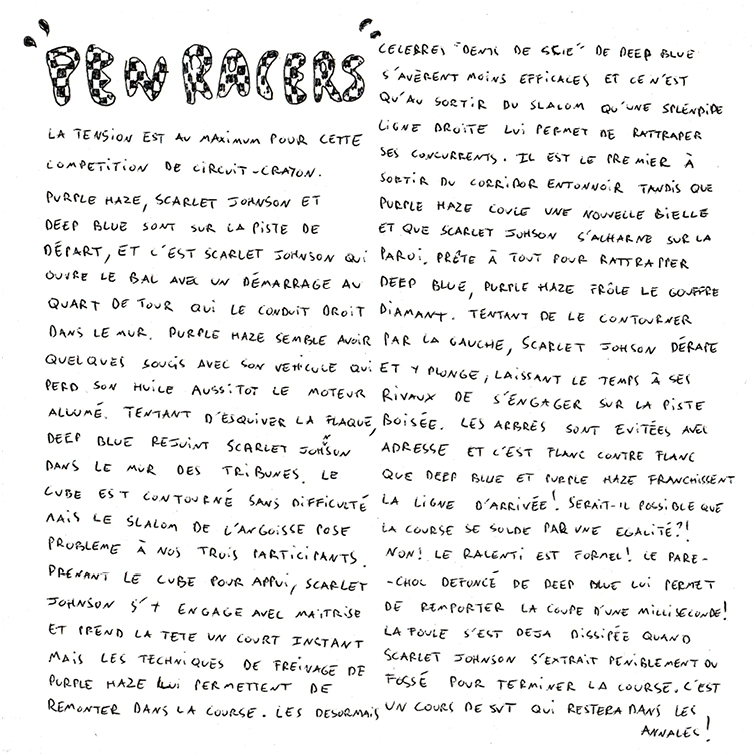 "PEN RACERS"
LA TENSION EST AU MAXIMUM POUR CETTE
COMPETITION DE CIRCUIT-CRAYON.
PURPLE HAZE, SCARLET JOHNSON ET
DEEP BLUE SONT SUR LA PISTE DE
DÉPART, ET C'EST SCARLET JOHNSON QUI
OUVRE LE BAL AVEC UN DÉMARRAGE AU
QUART DE TOUR QUI LE CONDUIT DROIT
DANS LE MUR. PURPLE HAZE SEMBLE AVOIR
QUELQUES SOUCIS AVEC SON VEHICULE QUI
PERD SON HUILE AUSSITOT LE MOTEUR
ALLUMÉ. TENTANT D'ESQUIVER LA FLAQUE,
DEEP BLUE REJOINT SCARLET JOHNSON
DANS LE MUR DES TRIBUNES. LE
CUBE EST CONTOURNÉ SANS DIFFICULTÉ
MAIS LE SLALOM DE L'ANGOISSE POSE
PROBLEME À NOS TROIS PARTICIPANTS.
PRENANT LE CUBE POUR APPUI, SCARLET
JOHNSON S'Y ENGAGE AVEC MAITRISE
ET PREND LA TETE UN COURT INSTANT
MAIS LES TECHNIQUES DE FREINAGE DE
PURPLE HAZE LUI PERMETTENT DE
REMONTER DANS LA COURSE. LES DESORMAIS
CELEBRES "DENTS DE SCIE" DE DEEP BLUE
S'AVÈRENT MOINS EFFICACES ET CE N'EST
QU'AU SORTIR DU SLALOM QU'UNE SPLENDIDE
LIGNE DROITE LUI PERMET DE RATTRAPER
SES CONCURRENTS. IL EST LE PREMIER À
SORTIR DU CORRIDOR ENTONNOIR TANDIS QUE
PURPLE HAZE COULE UNE NOUVELLE BIELLE
ET QUE SCARLET JOHSON S'ACHARNE SUR LA
PAROI. PRÊTE À TOUT POUR RATTRAPPER
DEEP BLUE, PURPLE HAZE FRÔLE LE GOUFFRE
DIAMANT. TENTANT DE LE CONTOURNER
PAR LA GAUCHE, SCARLET JOHSON DÉRAPE
ET Y PLONGE, LAISSANT LE TEMPS À SES
RIVAUX DE S'ENGAGER SUR LA PISTE
BOISÉE. LES ARBRES SONT EVITÉES AVEC
ADRESSE ET C'EST FLANC CONTRE FLANC
QUE DEEP BLUE ET PURPLE HAZE FRANCHISSENT
LA LIGNE D'ARRIVÉE! SERAIT-IL POSSIBLE QUE
LA COURSE SE SOLDE PAR UNE EGALITÉ?!
NON! LE RALENTI EST FORMEL! LE PARE-
-CHOC DEFONCÉ DE DEEP BLUE LUI PERMET
DE REMPORTER LA COUPE D'UNE MILLISECONDE!
LA FOULE S'EST DEJA DISSIPÉE QUAND
SCARLET JOHNSON S'EXTRAIT PENIBLEMENT DU
FOSSÉ POUR TERMINER LA COURSE. C'EST
UN COURS DE SVT QUI RESTERA DANS LES
ANNALES!